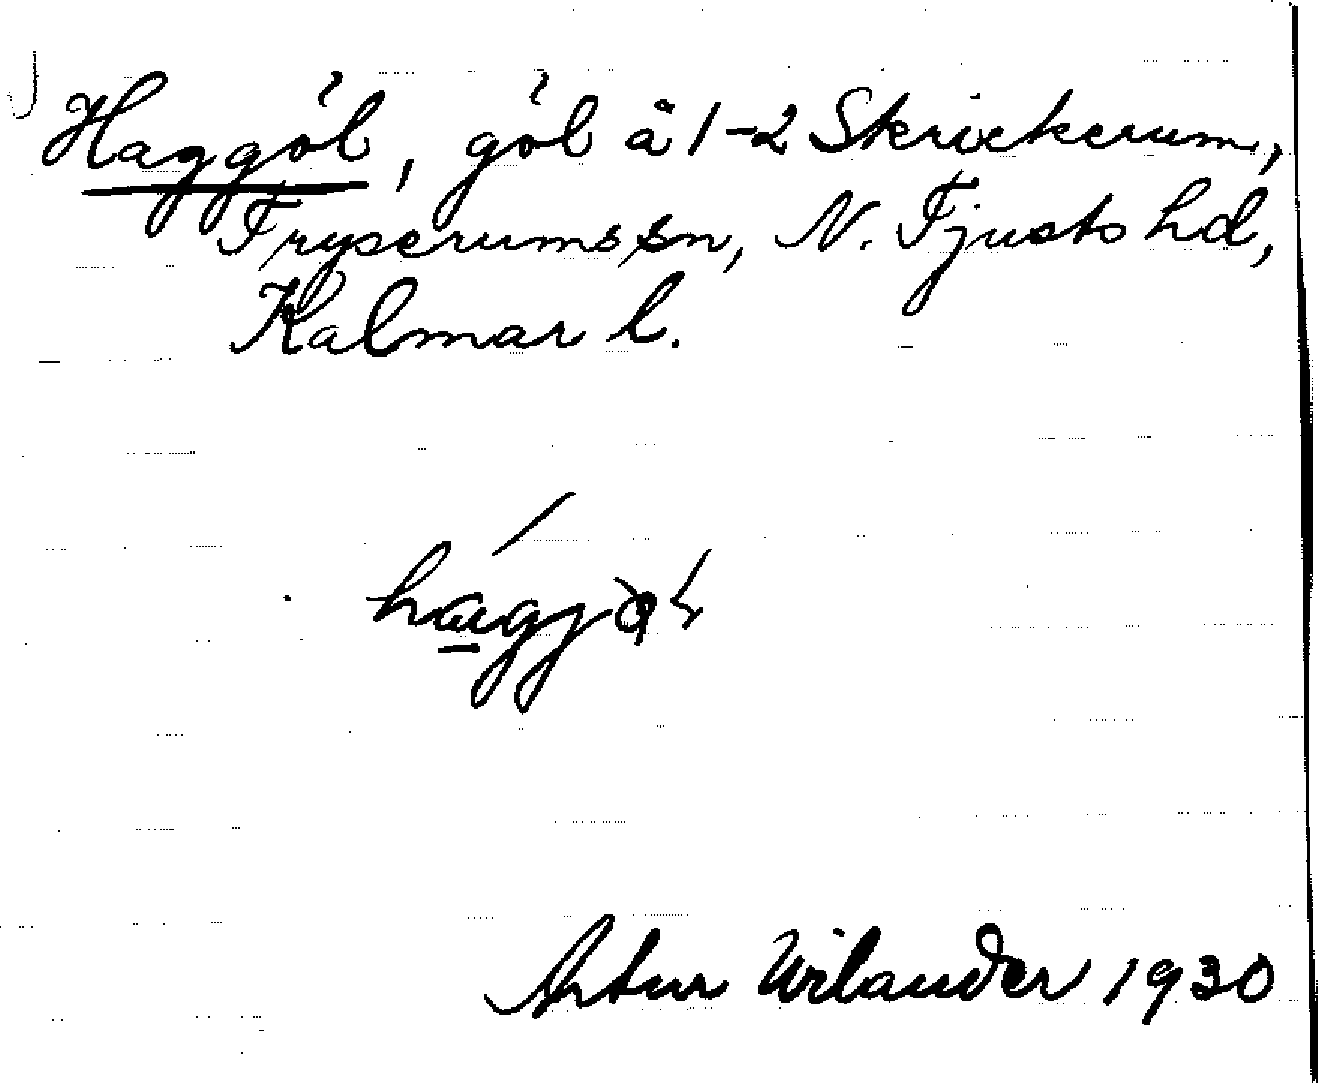 Haggöl, göl å 1-2 Skrickerum,
Fryserums sn, N. Tjusts hd,
Kalmar l.
Artur Wilander 1930